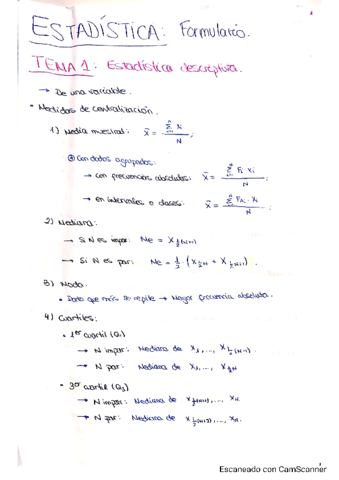 ESTADÍSTICA: Formulario.
TEMA 1: Estadística descriptiva.
→ De una variable.
• Medidas de centralización.
1) Media muestral: x̄ = Σ xᵢ / N ;
⊛ Con datos agrupados:
→ con frecuencias absolutas: x̄ = Σ Fᵢ · xᵢ / N ;
→ en intervalos o clases: x̄ = Σ · xᵢ / N ;
2) Mediana:
→ Si N es impar: Me = X ½(N+1)
→ Si N es par: Me = ½ · (X ½N + X ½N+1) ;
3) Moda.
• Dato que más se repite → Mayor frecuencia absoluta.
4) Cuartiles:
• 1er cuartil (Q₁)
→ N impar: Mediana de X₁, ..., X ½(N-1).
→ N par: Mediana de X₁, ..., X ½N
• 3er cuartil (Q₃)
→ N impar: Mediana de X ½(N+1), ..., XN.
→ N par: Mediana de X ½(N+2), ..., XN.
Escaneado con CamScanner